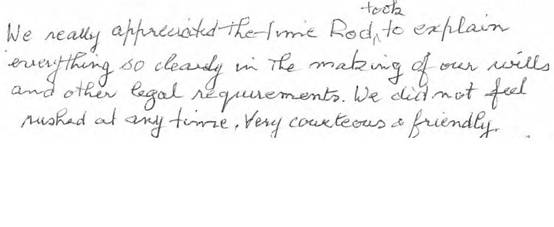 We really appreciated the time Rod took to explain
everything so clearly in the making of our wills
and other legal requirements. We did not feel
rushed at any time. Very courteous & friendly.